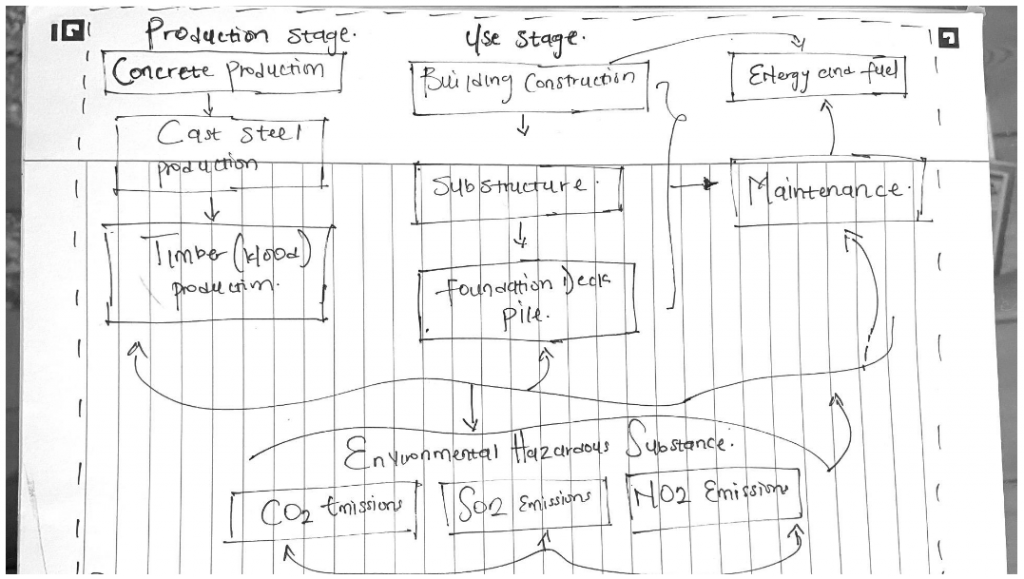 Production stage.
Use stage.
Concrete production
Building Construction
Energy and fuel
Cast steel
production
Substructure.
Maintenance.
Timber (Wood)
production.
Foundation Deck
pile.
Environmental Hazardous Substance.
CO2 Emissions
SO2 Emissions
NO2 Emissions